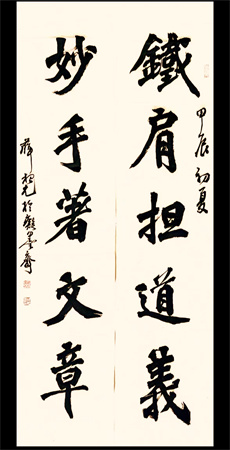 甲辰初夏
鐵肩担道義
妙手著文章
薛 光於 墨齋